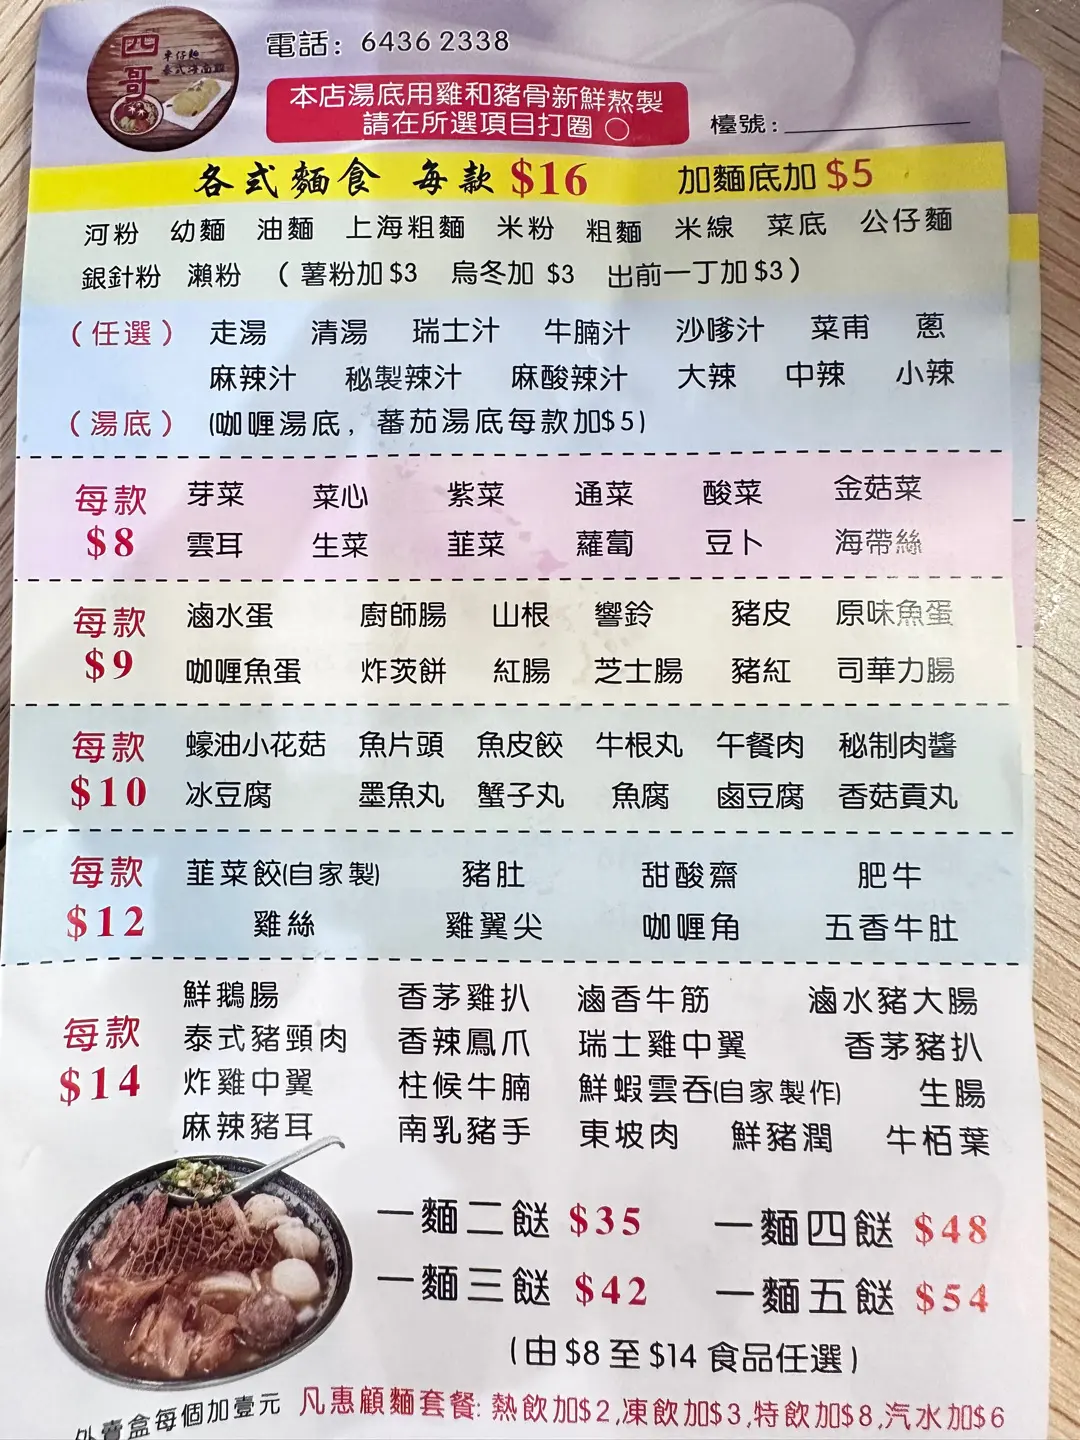 四哥
車仔麵
泰式海南雞
電話：6436 2338
本店湯底用雞和豬骨新鮮熬製
請在所選項目打圈 ○
檯號：
各式麵食 每款 $16 加麵底加 $5
河粉 幼麵 油麵 上海粗麵 米粉 粗麵 米線 菜底 公仔麵
銀針粉 瀨粉 （薯粉加 $3 烏冬加 $3 出前一丁加 $3）
（任選） 走湯 清湯 瑞士汁 牛腩汁 沙嗲汁 菜甫 蔥
麻辣汁 秘製辣汁 麻酸辣汁 大辣 中辣 小辣
（湯底） (咖喱湯底，蕃茄湯底每款加$5)
每款 $8
芽菜 菜心 紫菜 通菜 酸菜 金菇菜
雲耳 生菜 韮菜 蘿蔔 豆卜 海帶絲
每款 $9
滷水蛋 廚師腸 山根 響鈴 豬皮 原味魚蛋
咖喱魚蛋 炸茨餅 紅腸 芝士腸 豬紅 司華力腸
每款 $10
蠔油小花菇 魚片頭 魚皮餃 牛根丸 午餐肉 秘制肉醬
冰豆腐 墨魚丸 蟹子丸 魚腐 鹵豆腐 香菇貢丸
每款 $12
韮菜餃(自家製) 豬肚 甜酸齋 肥牛
雞絲 雞翼尖 咖喱角 五香牛肚
每款 $14
鮮鵝腸 香茅雞扒 滷香牛筋 滷水豬大腸
泰式豬頸肉 香辣鳳爪 瑞士雞中翼 香茅豬扒
炸雞中翼 柱候牛腩 鮮蝦雲吞(自家製作) 生腸
麻辣豬耳 南乳豬手 東坡肉 鮮豬潤 牛栢葉
一麵二餸 $35 一麵四餸 $48
一麵三餸 $42 一麵五餸 $54
(由 $8 至 $14 食品任選)
外賣盒每個加壹元 凡惠顧麵套餐: 熱飲加$2,凍飲加$3,特飲加$8,汽水加$6